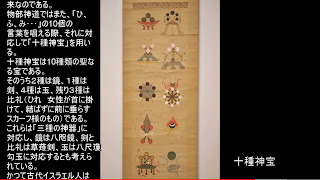 来なのである。
物部神道ではまた、「ひ、
ふ、み・・・」の10個の
言葉を唱える際、それに対
応して「十種神宝」を用い
る。
十種神宝は10種類の聖な
る宝である。
そのうち2種は鏡、1種は
剣、4種は玉、残り3種は
比礼（ひれ　女性が首に掛
けて、結ばずに前に垂らす
スカーフ様のもの）である。
これらは「三種の神器」に
対応し、鏡は八咫鏡、剣と
比礼は草薙剣、玉は八尺瓊
勾玉に対応するとも考えら
れている。
かつて古代イスラエル人は
十種神宝